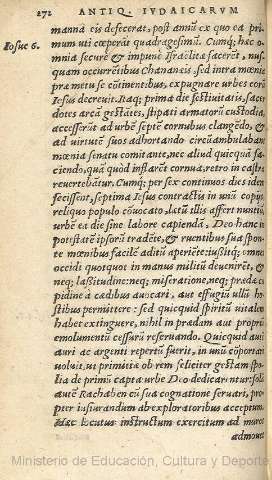 272 ANTIQ. IVDAICARVM
manna eis defecerat, post annũ ex quo ea pri-
mum uti cœperãt quadragesimũ. Cumq; hæc o-
Iosuc 6.
mnia secure & impune Israëlitæ facerẽt, nus-
quam occurrẽtibus Chananæis, sed intra mœnia
præ metu se cõtinentibus, expugnare urbes eorũ
Iesus decreuit. Itaq; prima die festiuitatis, sacer
dotes arcã gestãtes, stipati armatorũ custodia,
accesserũt ad urbẽ septẽ cornubus clangẽdo, &
ad uirtutẽ suos adhortando circũambulabant
mœnia senatu comitante, nec aliud quicquã fa-
ciendo, quã quòd inflarẽt cornua, retro in castra
reuertebãtur. Cumq; per sex continuos dies idem
fecissent, septima Iesus contractis in unũ copijs
reliquo populo cõuocato, lætũ illis affert nuntiũ,
urbẽ ea die sine labore capiendã, Deo hanc in
potestatẽ ipsorũ tradẽte, & ruentibus sua spon-
te mœnibus facilẽ aditũ aperiẽte: iußitq; omnes
occidi quotquot in manus militũ deuenirẽt, &
neq; laßitudine: neq; miseratione, neq; prædæ cu
pidine à cædibus auocari, aut effugiũ ullũ ho-
stibus permittere: sed quicquid spiritũ uitalem
habet extinguere, nihil in prædam aut propriũ
emolumentũ cessurũ reseruando. Quicquid aut
auri ac argenti repertũ fuerit, in unũ cõportari
uoluit, ut primitiæ ob rem feliciter gestam spo-
lia de primũ capta urbe Deo dedicarẽtur: solã
autẽ Rachaben cũ sua cognatione seruari, pro-
pter iusiurandum ab exploratoribus acceptum.
Hæc locutus instructum exercitum ad muros
admouet
Ministerio de Educación, Cultura y Deporte